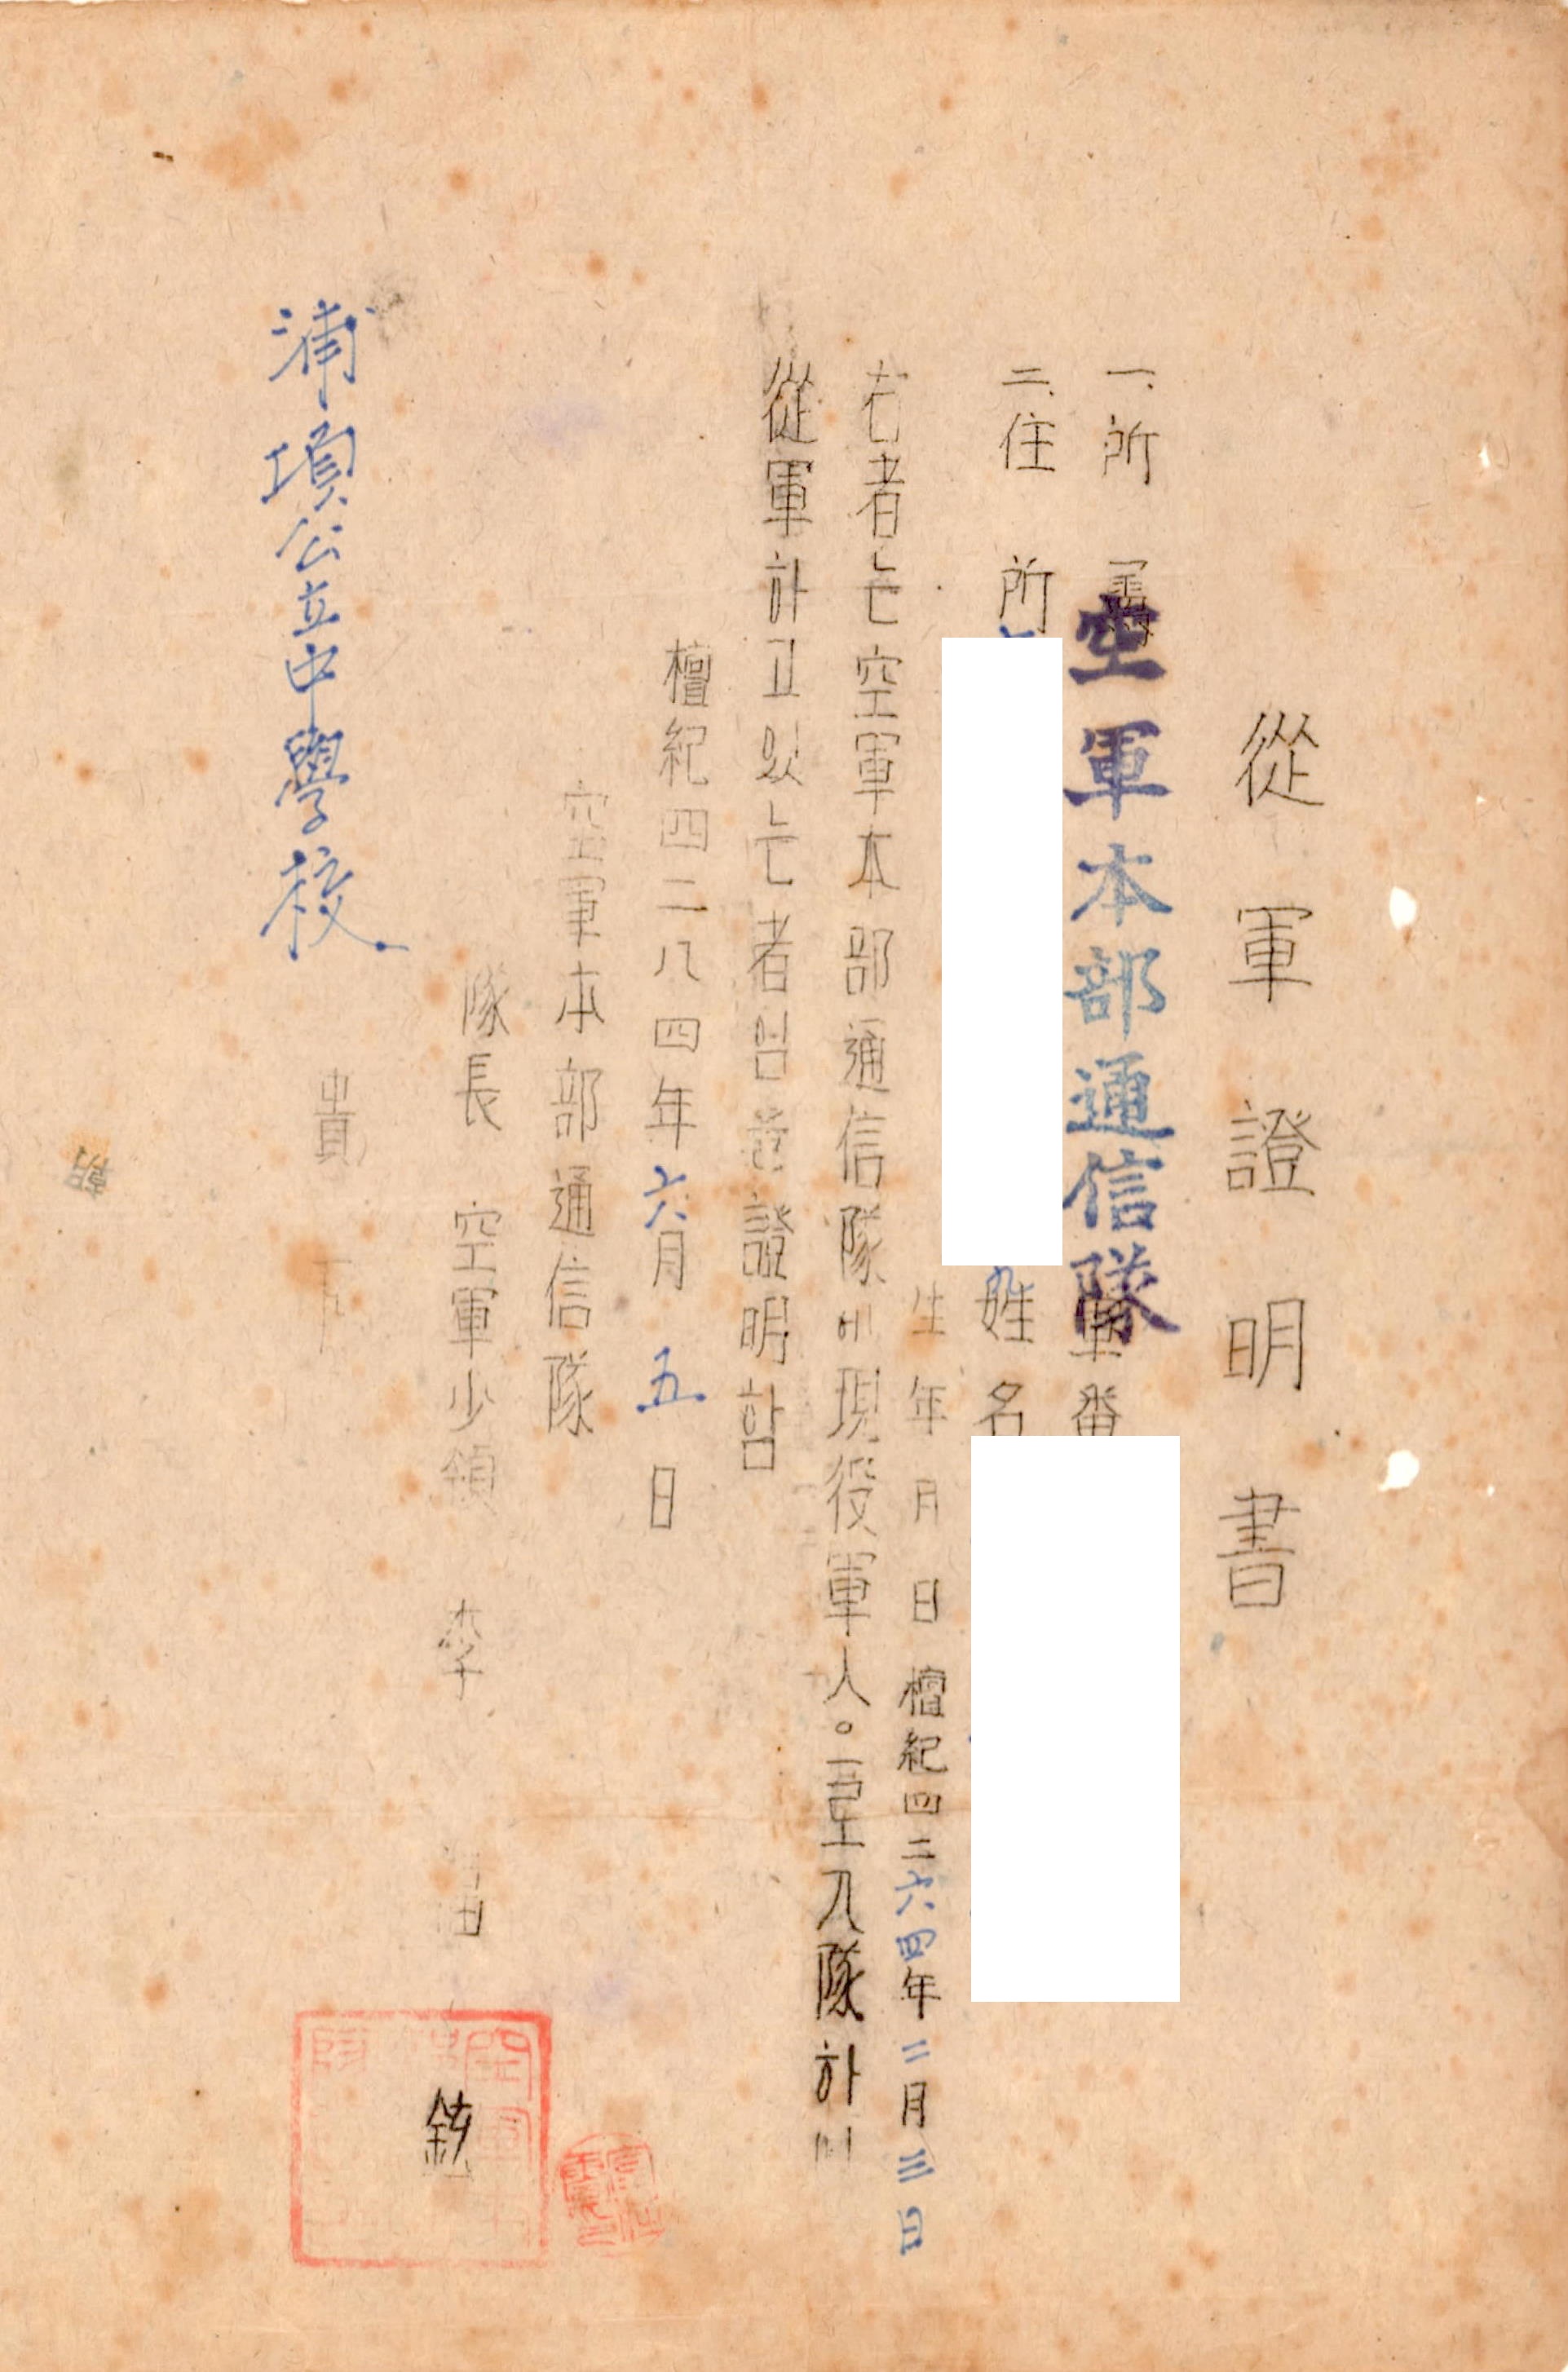 從軍證明書
一、所屬 空軍本部通信隊 軍番
二、住所 姓名
生年月日 檀紀四二六四年二月三日
右者는空軍本部通信隊에現役軍人。로入隊하여
從軍하고있는者임을證明함
檀紀四二八四年六月五日
空軍本部通信隊
隊長 空軍少領 李
浦項公立中學校 貴下